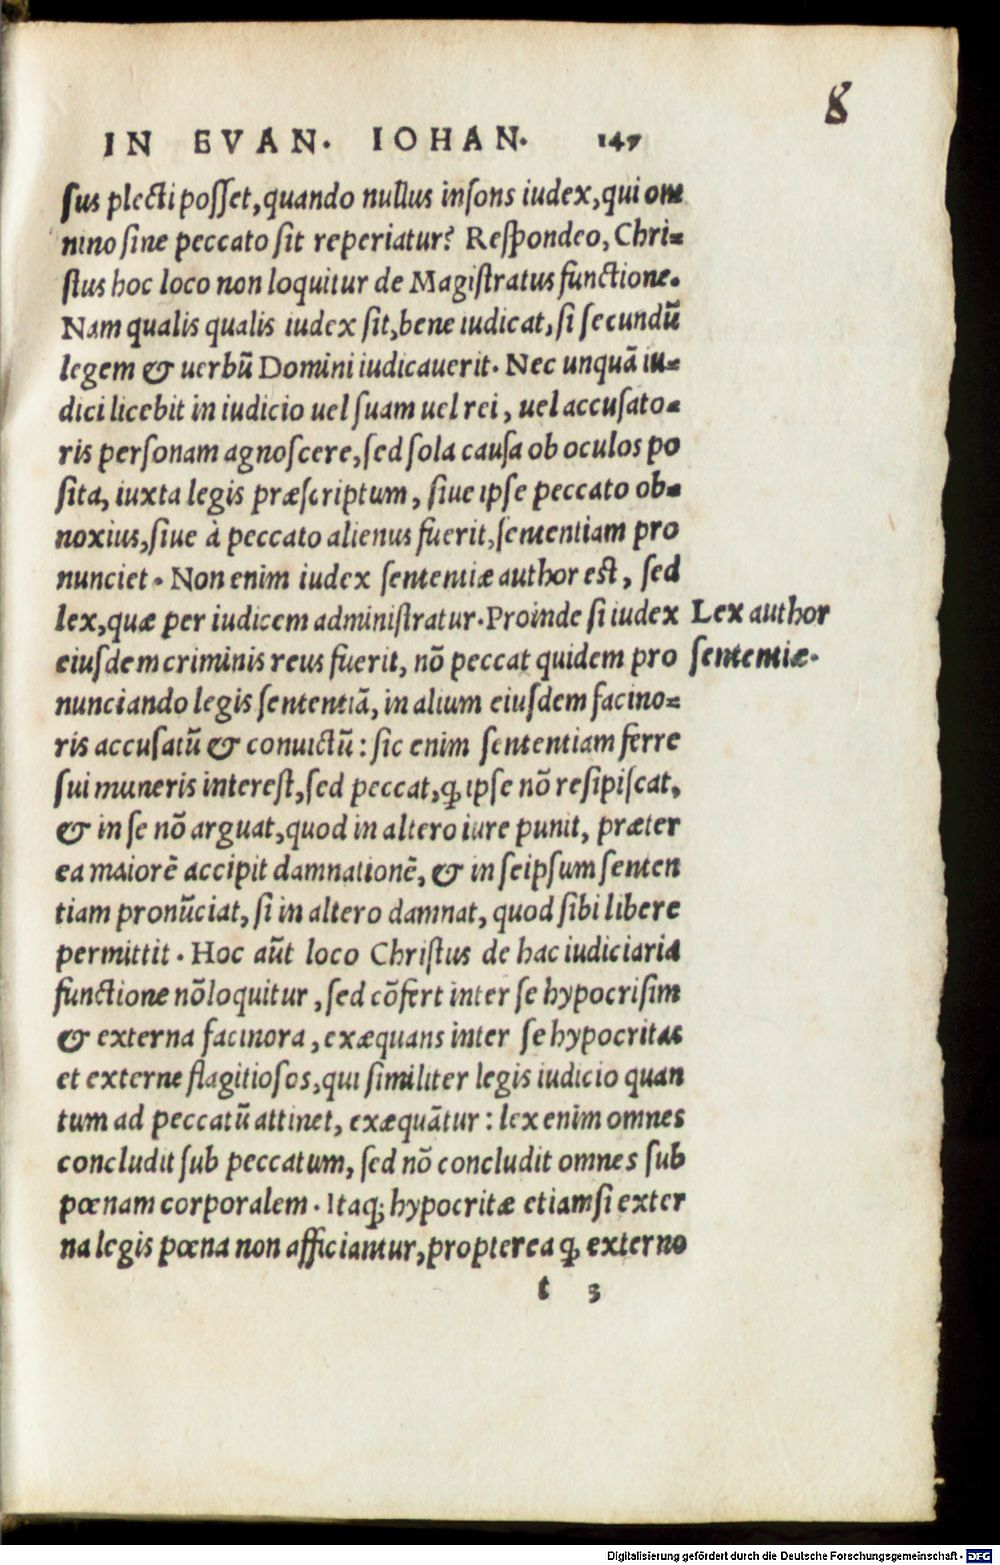 8
IN EVAN. IOHAN. 147
ſus plecti poſſet, quando nullus inſons iudex, qui om
nino ſine peccato ſit reperiatur? Reſpondeo, Chri=
ſtus hoc loco non loquitur de Magiſtratus functione.
Nam qualis qualis iudex ſit, bene iudicat, ſi ſecundũ
legem & uerbũ Domini iudicauerit. Nec unquã iu=
dici licebit in iudicio uel ſuam uel rei, uel accuſato=
ris perſonam agnoſcere, ſed ſola cauſa ob oculos po
ſita, iuxta legis præſcriptum, ſiue ipſe peccato ob=
noxius, ſiue à peccato alienus fuerit, ſententiam pro
nunciet. Non enim iudex ſententiæ author eſt, ſed
lex, quæ per iudicem adminiſtratur. Proinde ſi iudex
Lex author
eiuſdem criminis reus fuerit, nõ peccat quidem pro
ſententiæ.
nunciando legis ſententiã, in alium eiuſdem facino=
ris accuſatũ & conuictũ: ſic enim ſententiam ferre
ſui muneris intereſt, ſed peccat, ꝙ ipſe nõ reſipiſcat,
& in ſe nõ arguat, quod in altero iure punit, præter
ea maiorẽ accipit damnationẽ, & in ſeipſum ſenten
tiam pronũciat, ſi in altero damnat, quod ſibi libere
permittit. Hoc aũt loco Chriſtus de hac iudiciaria
functione nõ loquitur, ſed cõfert inter ſe hypocriſim
& externa facinora, exæquans inter ſe hypocritas
et externe flagitioſos, qui ſimiliter legis iudicio quan
tum ad peccatũ attinet, exæquãtur: lex enim omnes
concludit ſub peccatum, ſed nõ concludit omnes ſub
pœnam corporalem. Itaq; hypocritæ etiamſi exter
na legis pœna non afficiantur, propterea ꝙ externo
t 3
Digitalisierung gefördert durch die Deutsche Forschungsgemeinschaft - DFG